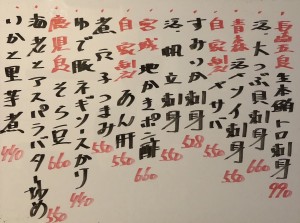 長崎五島 生本鮪トロ刺身 990
活 大つぶ貝刺身 560
青森 活ソイ刺身 560
自家製〆サバ 560
すみいか刺身 508
活 帆立刺身 560
宮城 地かきポン酢 660
自家製 あん肝 560
煮穴子つまみ 560
ゆで豚ネギソースかけ 440
鹿児島 そら豆 660
海老とアスパラバター炒め 560
いかと里芋煮 440